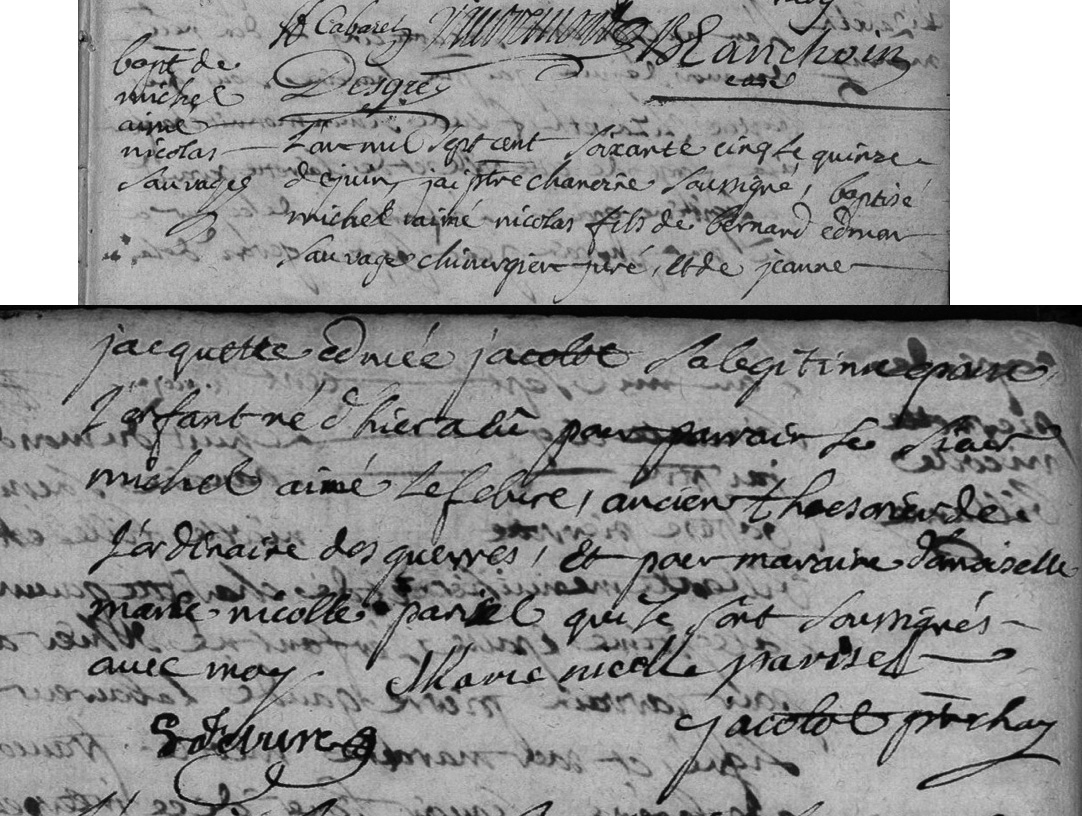 Cabaret
Blanchoin
curé
Desgrez
bapt de
michel
aimé
nicolas
Sauvages
L'an mil sept cent soixante cinq le quinze
de juin, jai ptre chanoine soussigné, baptisé
michel aimé nicolas fils de bernard edmon
Sauvage chirurgien juré, et de jeanne
jacquette edmée jacolot sa legitime
L'enfant né d'hier a eû pour parrain le Sieur
michel aimé Lefebvre, ancien thresorier de
L'ordinaire des guerres, Et pour maraine damoiselle
marie nicolle parisel qui se sont soussignés
avec moy Marie nicolle parisel
Lefebvre jacolot ptre chan